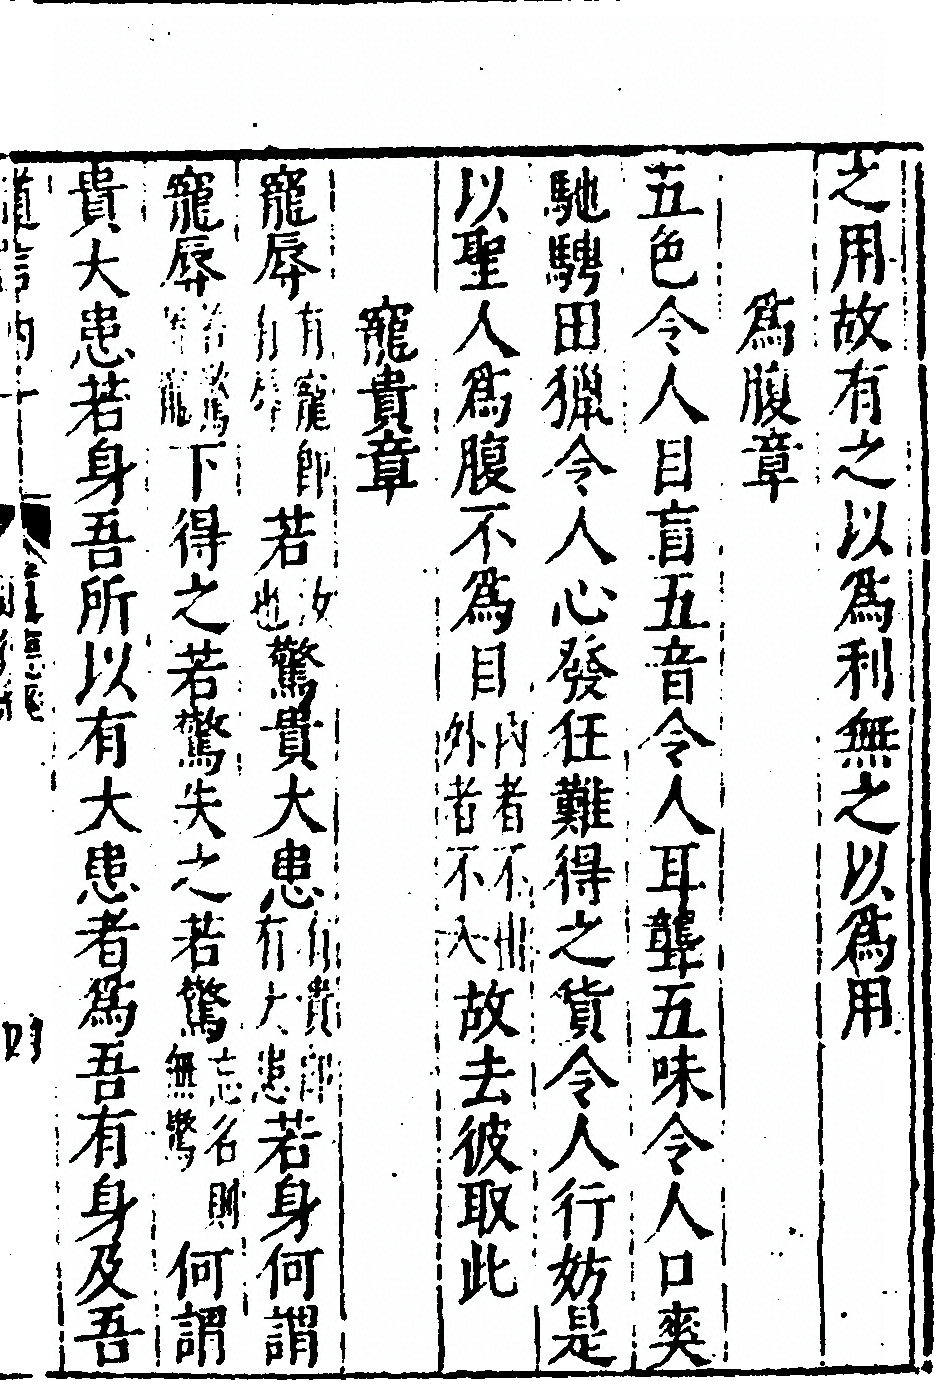 之用故有之以爲利無之以爲用
爲腹章
五色令人目盲五音令人耳聾五味令人口爽
馳騁田獵令人心發狂難得之貨令人行妨是
以聖人爲腹不爲目內者不出外者不入故去彼取此
寵貴章
寵辱有寵即有辱若汝也驚貴大患有貴即有大患若身何謂
寵辱若驚寵下得之若驚失之若驚忘名則無驚何謂
貴大患若身吾所以有大患者爲吾有身及吾